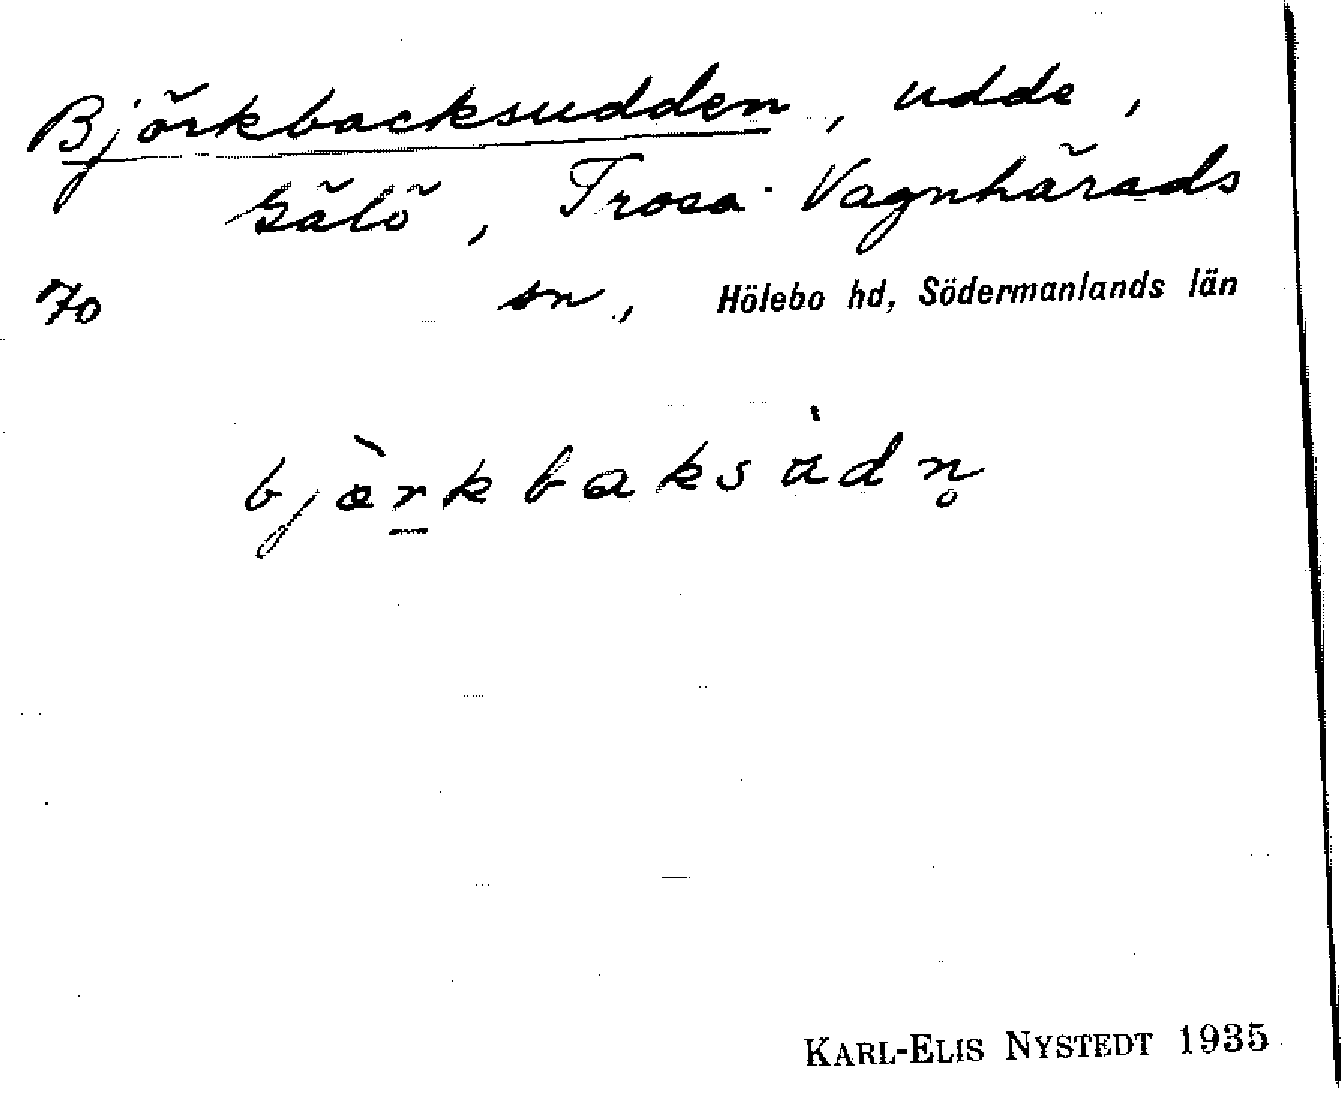 Björkbacksudden, udde,
Gälö, Trosa-Vagnhärads
70 sn., Hölebo hd, Södermanlands län
bjœ̀rkbaksùdn̥
KARL-ELIS NYSTEDT 1935